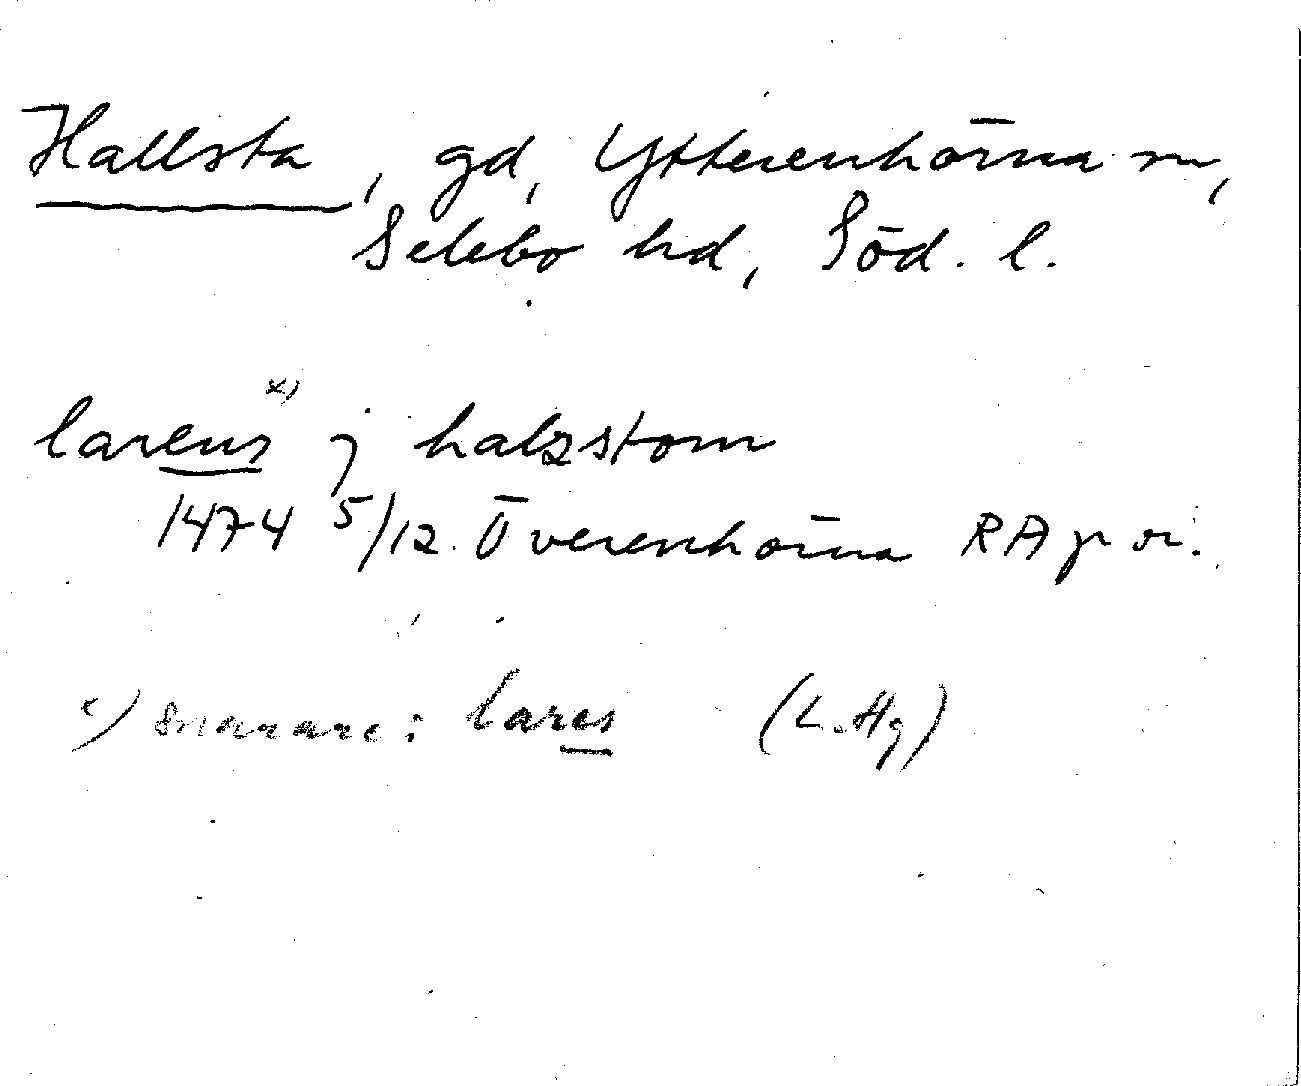 Hallsta, gd, Ytterenhörna sn,
Selebo hd, Söd. l.
larens x) j halzstom
1474 5/12 Överenhörna RAp or.
x) snarare: lares (L. Hg)